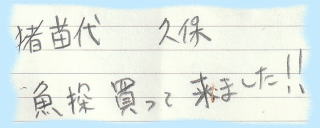 猪苗代 久保
魚探買って来ました!!